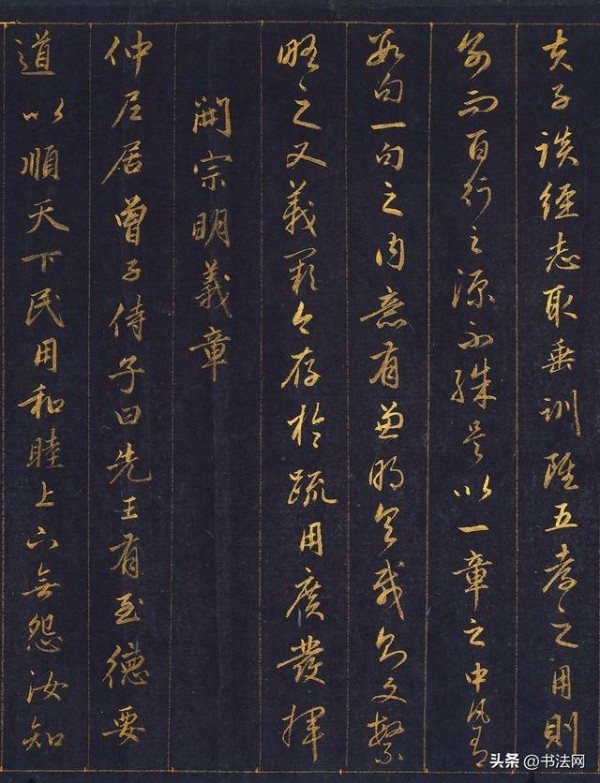 夫子談經志取垂訓雖五孝之用則
別而百行之源不殊是以一章之中凡有
數句一句之內意有兼明具載則文繁
略之又義闕今存於疏用廣發揮
開宗明義章
仲尼居曾子侍子曰先王有至德要
道以順天下民用和睦上下無怨汝知
头条 @书法网